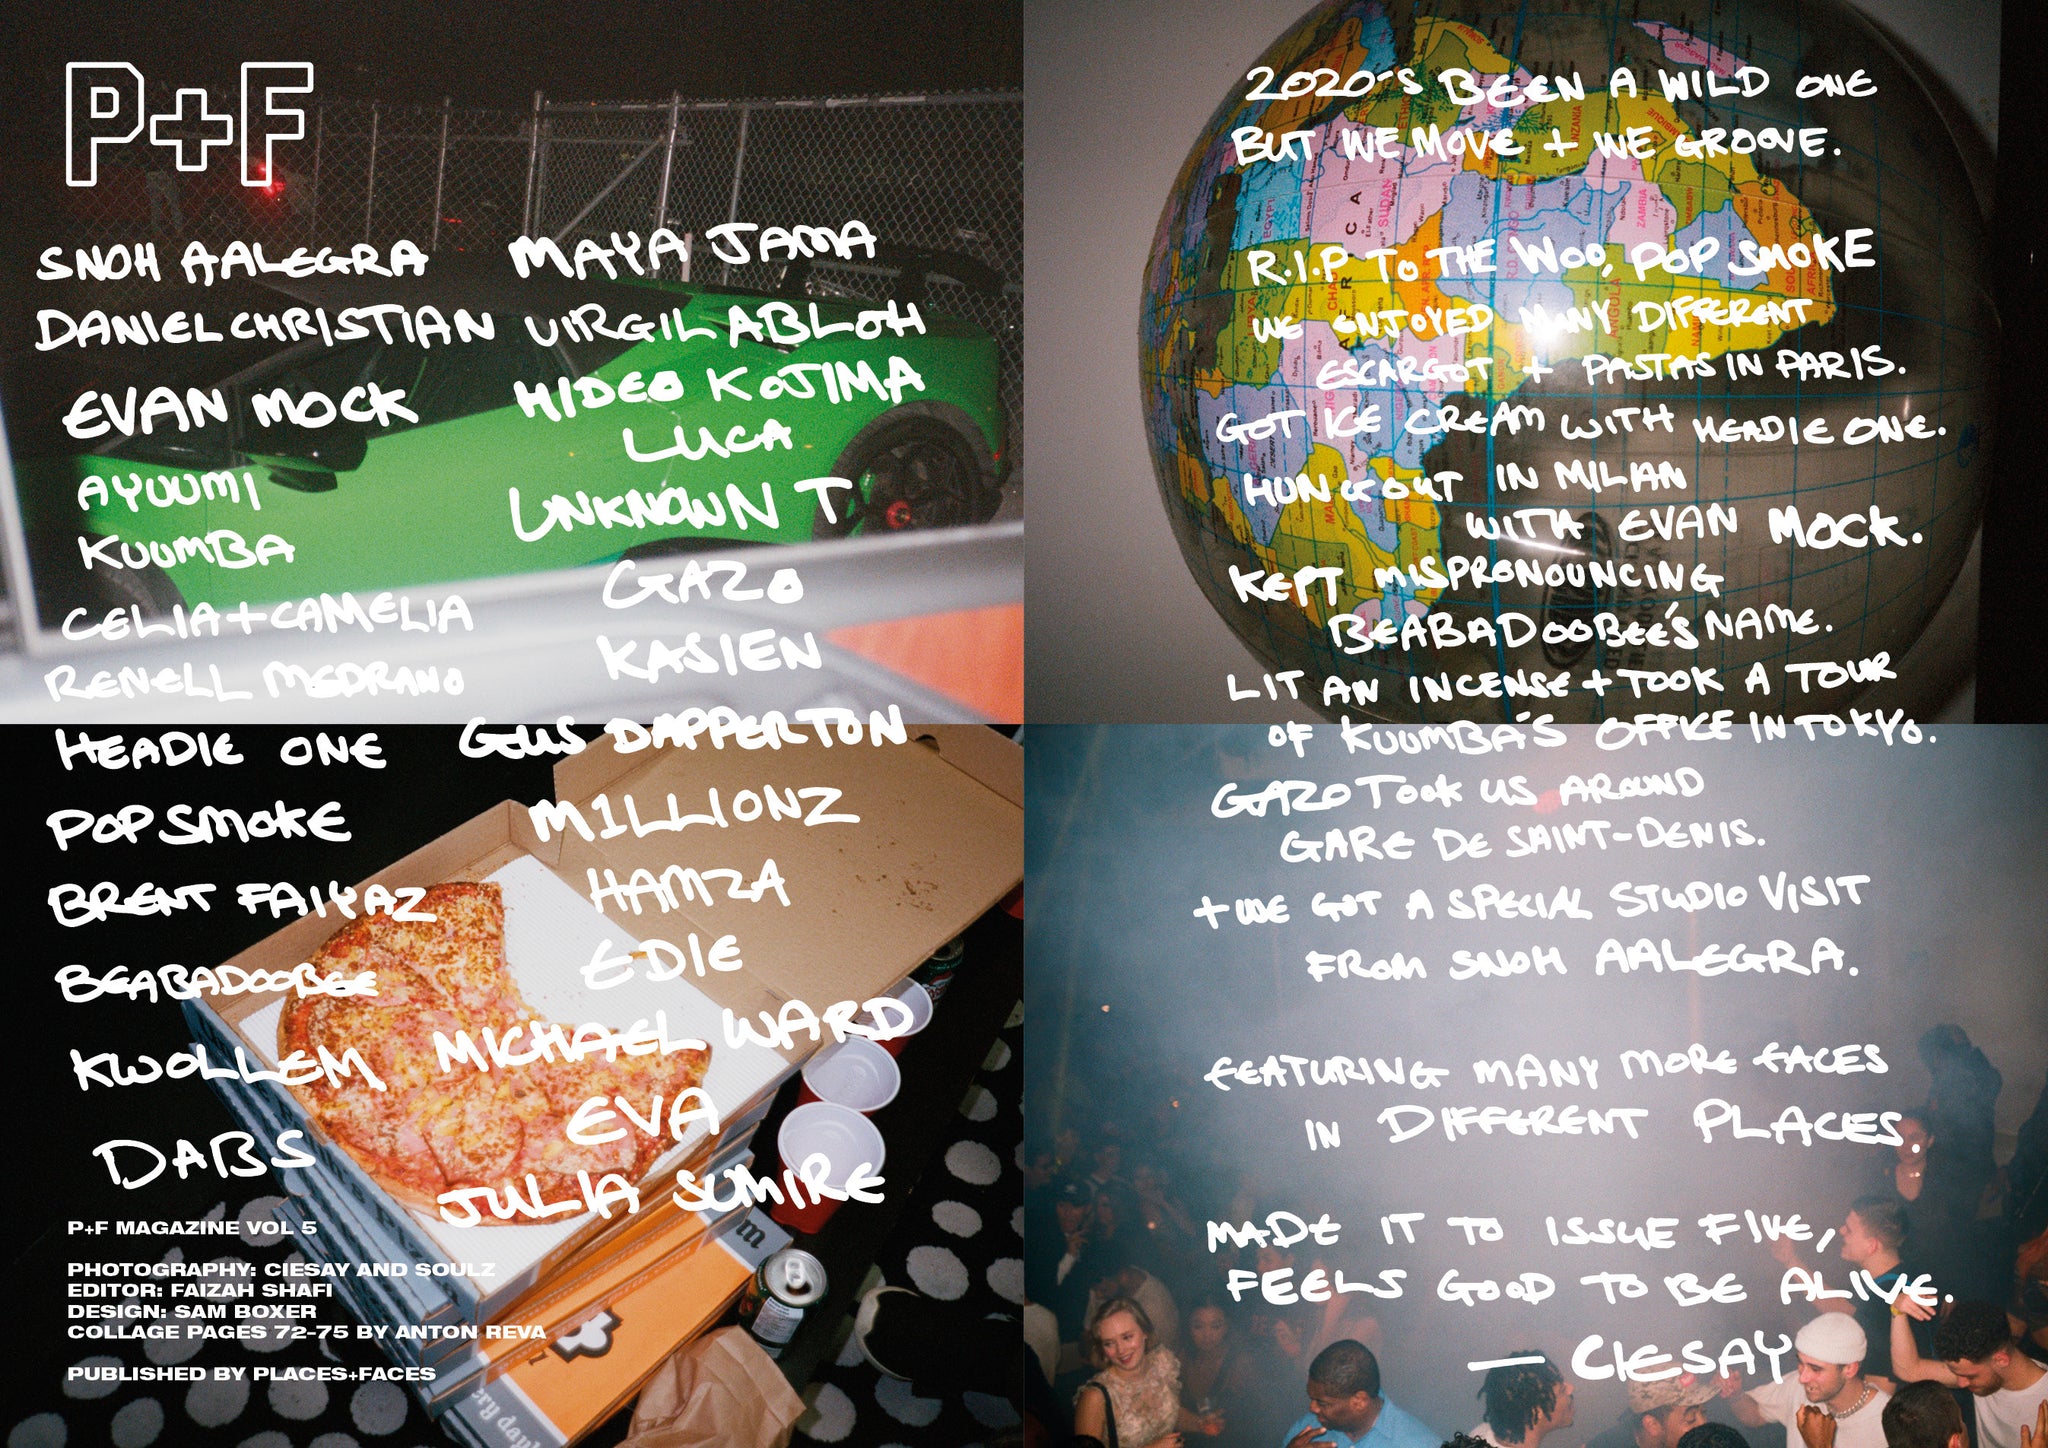 P+F
SNOH AALEGRA
DANIEL CHRISTIAN
EVAN MOCK
AYUUMI
KUUMBA
CELIA+CAMELIA
RENELL MEDRANO
HEADIE ONE
POP SMOKE
BRENT FAIYAZ
BEABADOOBEE
KWOLLEM
DABS
MAYA JAMA
VIRGIL ABLOH
HIDEO KOJIMA
LUCA
UNKNOWN T
GAZO
KASIEN
GUS DAPPERTON
M1LLIONZ
HAMZA
EDIE
MICHAEL WARD
EVA
JULIA SUMIRE
P+F MAGAZINE VOL 5
PHOTOGRAPHY: CIESAY AND SOULZ
EDITOR: FAIZAH SHAFI
DESIGN: SAM BOXER
COLLAGE PAGES 72-75 BY ANTON REVA
PUBLISHED BY PLACES+FACES
2020'S BEEN A WILD ONE
BUT WE MOVE + WE GROOVE.
R.I.P TO THE WOO, POP SMOKE
WE ENJOYED MANY DIFFERENT
ESCARGOT + PASTAS IN PARIS.
GOT ICE CREAM WITH HEADIE ONE.
HUNG OUT IN MILAN
WITH EVAN MOCK.
KEPT MISPRONOUNCING
BEABADOOBEE'S NAME.
LIT AN INCENSE + TOOK A TOUR
OF KUUMBA'S OFFICE IN TOKYO.
GAZO TOOK US AROUND
GARE DE SAINT-DENIS.
+ WE GOT A SPECIAL STUDIO VISIT
FROM SNOH AALEGRA.
FEATURING MANY MORE FACES
IN DIFFERENT PLACES.
MADE IT TO ISSUE FIVE,
FEELS GOOD TO BE ALIVE.
— CIESAY
EGYPT
SUDAN
CHAD
AFRICA
TANZANIA
ZAMBIA
ANGOLA